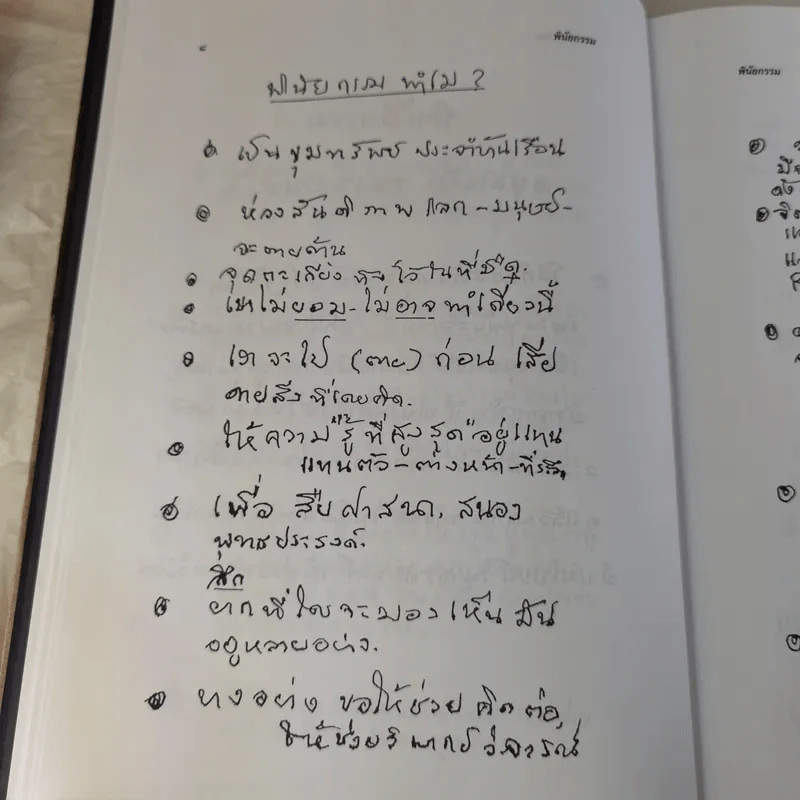 ๔
พินัยกรรม
พินัยกรรม ทำไม ?
เป็นขุมทรัพย์ ประจำบ้านเรือน
ห่วงสันติภาพ โลก - มนุษย์ -
จะตายด้าน
จุดตะเกียง ทิ้งไว้ในที่มืด.
เขาไม่ยอม - ไม่อาจ ทำเดี๋ยวนี้
เขาจะไป (ตาย) ก่อน เสีย
ดายสิ่ง ที่เคยคิด.
ให้ความ "รู้ ที่สูงสุด" อยู่แทน
แทนตัว - ต่างหน้า - ที่ระลึก
เพื่อ สืบศาสนา, สนอง
พุทธประสงค์.
ลึก
ยากที่ใครจะมองเห็น มัน
อยู่หลายอย่าง.
บางอย่าง ขอให้ช่วย คิด ต่อ,
ให้ช่วยวิพากย์ วิจารณ์
พินัยกรรม